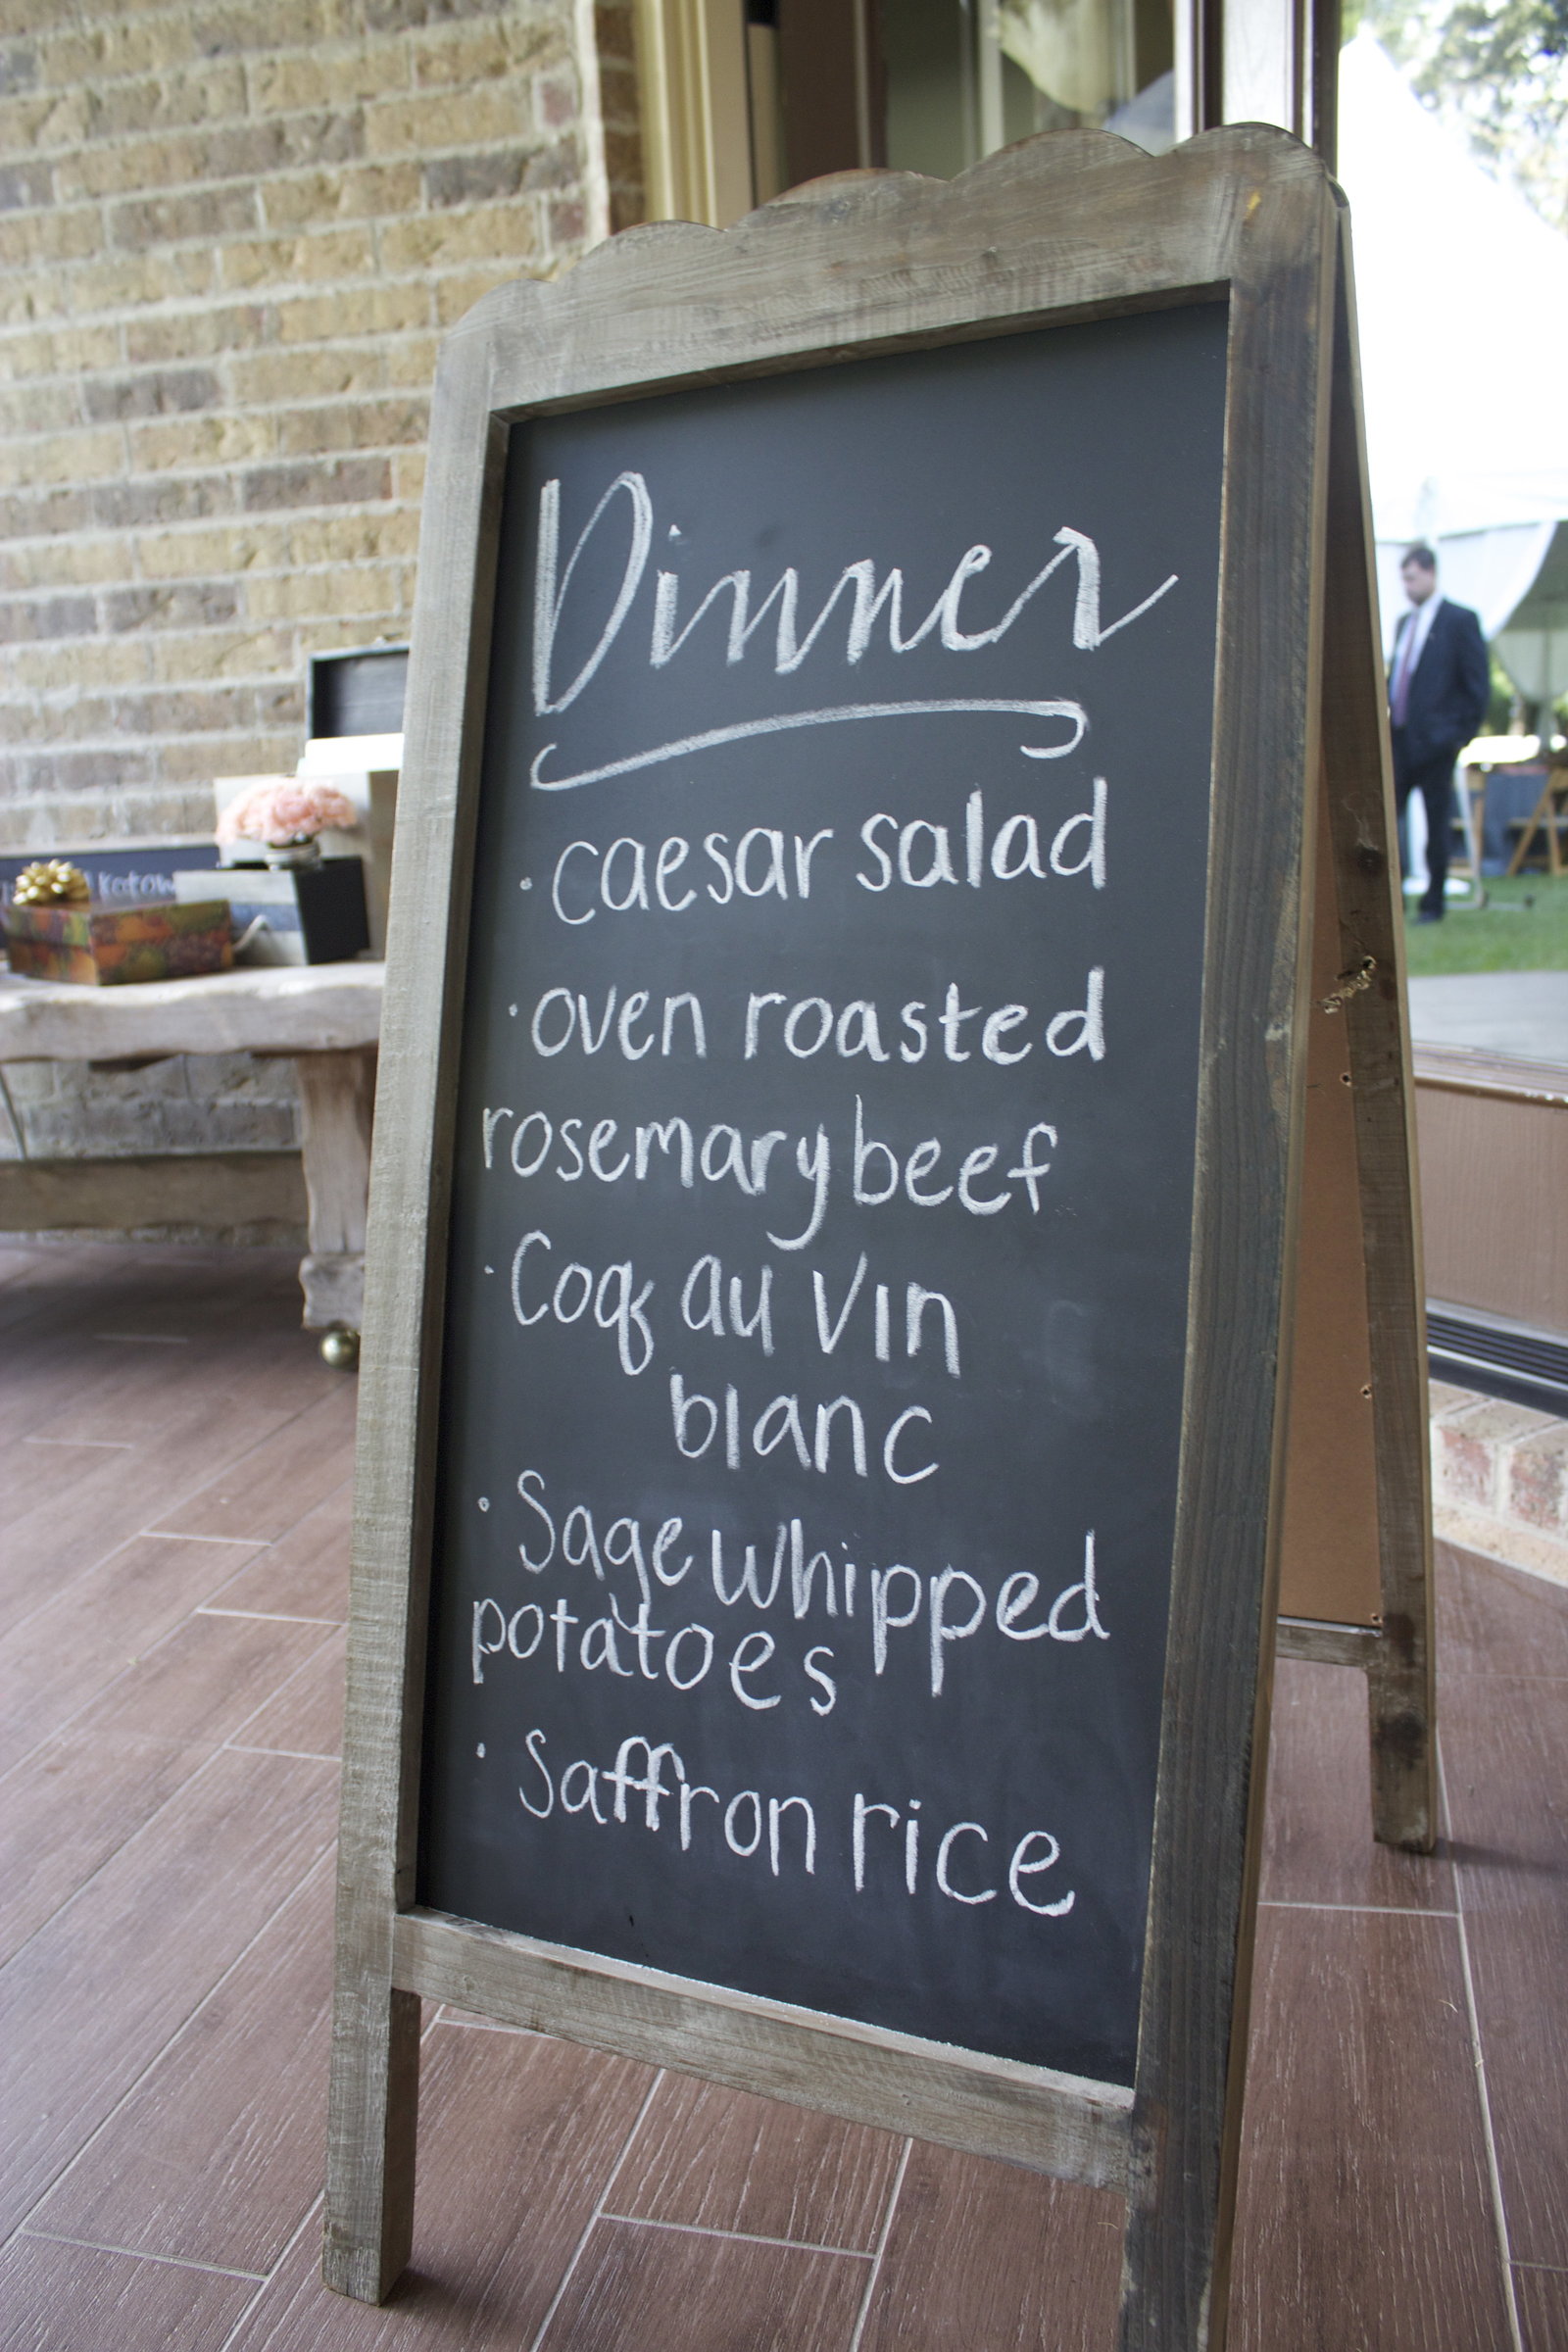 Dinner
· caesar salad
· oven roasted
rosemary beef
· Coq au Vin
blanc
· Sage whipped
potatoes
· Saffron rice